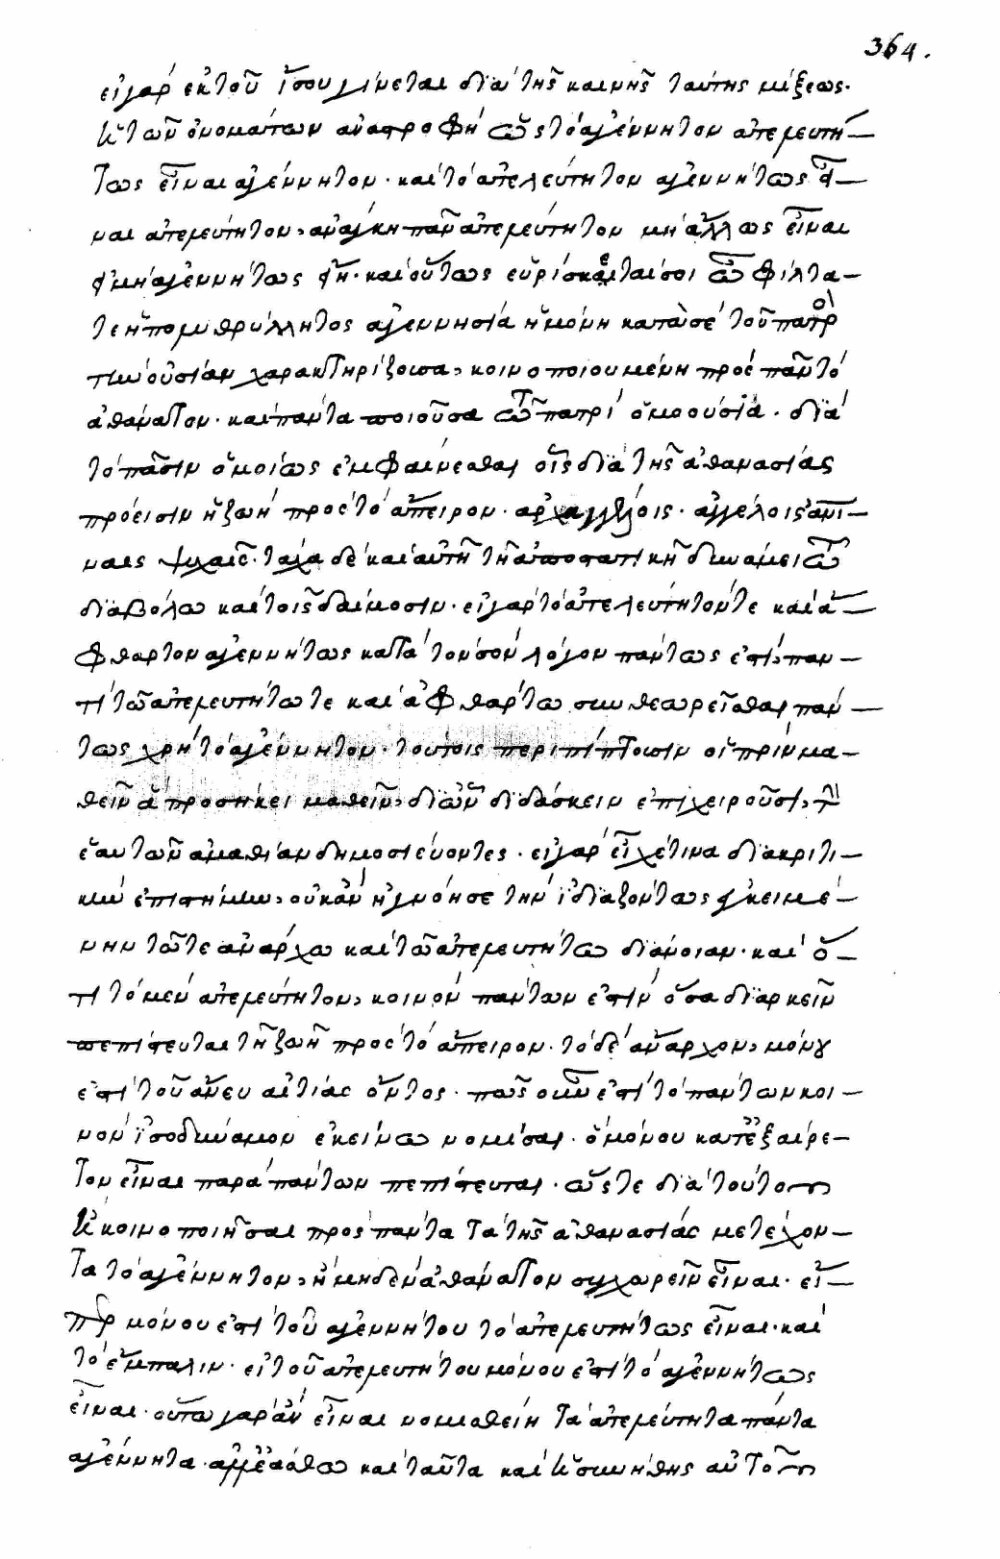 364.
εἰ γὰρ ἐκ τοῦ ἴσου γίνεται διὰ τῆς καινῆς ταύτης μίξεως
ἡ τῶν ὀνομάτων ἀναστροφὴ ὥστε τὸ ἀγέννητον ἀτελευτή-
τως εἶναι ἀγέννητον · καὶ τὸ ἀτελεύτητον ἀγεννήτως εἶ-
ναι ἀτελεύτητον, ἀνάγκη πᾶν ἀτελεύτητον μὴ ἄλλως εἶναι
εἰ μὴ ἀγεννήτως εἴη · καὶ οὕτως εὑρίσκεταί σοι ὦ φίλτα-
τε ἡ πολυθρύλλητος ἀγεννησία ἡ μόνη κατὰ σὲ τοῦ πατρὸς
τὴν οὐσίαν χαρακτηρίζουσα, κοινοποιουμένη πρὸς πᾶν τὸ
ἀθάνατον · καὶ πάντα ποιοῦσα τῷ πατρὶ ὁμοούσια · διὰ
τὸ πᾶσιν ὁμοίως ἐμφαίνεσθαι οἷς διὰ τῆς ἀθανασίας
πρόεισιν ἡ ζωὴ πρὸς τὸ ἄπειρον · ἀρχαγγέλοις · ἀγγέλοις ἀνθρωπί-
ναις ψυχαῖς · τάχα δὲ καὶ αὐτῇ τῇ ἀποστατικῇ δυνάμει τῷ
διαβόλῳ καὶ τοῖς δαίμοσιν · εἰ γὰρ τὸ ἀτελεύτητόν τε καὶ ἄ-
φθαρτον ἀγεννήτως κατὰ τὸν σὸν λόγον πάντως ἐστὶ, παν-
τὶ τῷ ἀτελευτήτῳ τε καὶ ἀφθάρτῳ συνθεωρεῖσθαι πάν-
τως χρὴ τὸ ἀγέννητον · τούτοις περιπίπτουσιν οἱ πρὶν μα-
θεῖν ἃ προσήκει μαθεῖν, δι' ὧν διδάσκειν ἐπιχειροῦσι, τὴν
ἑαυτῶν ἀμαθίαν δημοσιεύοντες · εἰ γὰρ εἶχέ τινα διακριτι-
κὴν ἐπιστήμην, οὐκ ἂν ἠγνόησε τὴν ἰδιαζόντως ἐγκειμέ-
νην τῷ τε ἀνάρχῳ καὶ τῷ ἀτελευτήτῳ διάνοιαν · καὶ ὅ-
τι τὸ μὲν ἀτελεύτητον, κοινὸν πάντων ἐστὶν ὅσα διαρκεῖν
πεπίστευται τῇ ζωῇ πρὸς τὸ ἄπειρον · τὸ δὲ ἄναρχον, μόνου
ἐστὶ τοῦ ἄνευ αἰτίας ὄντος · πῶς οὖν ἐστὶ τὸ πάντων κοι-
νὸν ἰσοδύναμον ἐκείνῳ νομίσαι · ὃ μόνου κατ' ἐξαίρε-
τον εἶναι παρὰ πάντων πεπίστευται · ὥστε διὰ τοῦτο
ἢ κοινοποιῆσαι πρὸς πάντα τὰ τῆς ἀθανασίας μετέχον-
τα τὸ ἀγέννητον, ἢ μηδὲν ἀθάνατον συγχωρεῖν εἶναι · εἴ-
περ μόνου ἐστὶ τοῦ ἀγεννήτου τὸ ἀτελευτήτως εἶναι · καὶ
τὸ ἔμπαλιν · εἰ τοῦ ἀτελευτήτου μόνου ἐστὶ τὸ ἀγεννήτως
εἶναι · οὕτω γὰρ ἂν εἶναι νομισθείη τὰ ἀτελεύτητα πάντα
ἀγέννητα · ἀλλ' ἐάσθω καὶ ταῦτα καὶ ἡ συνήθης αὐτοῦ